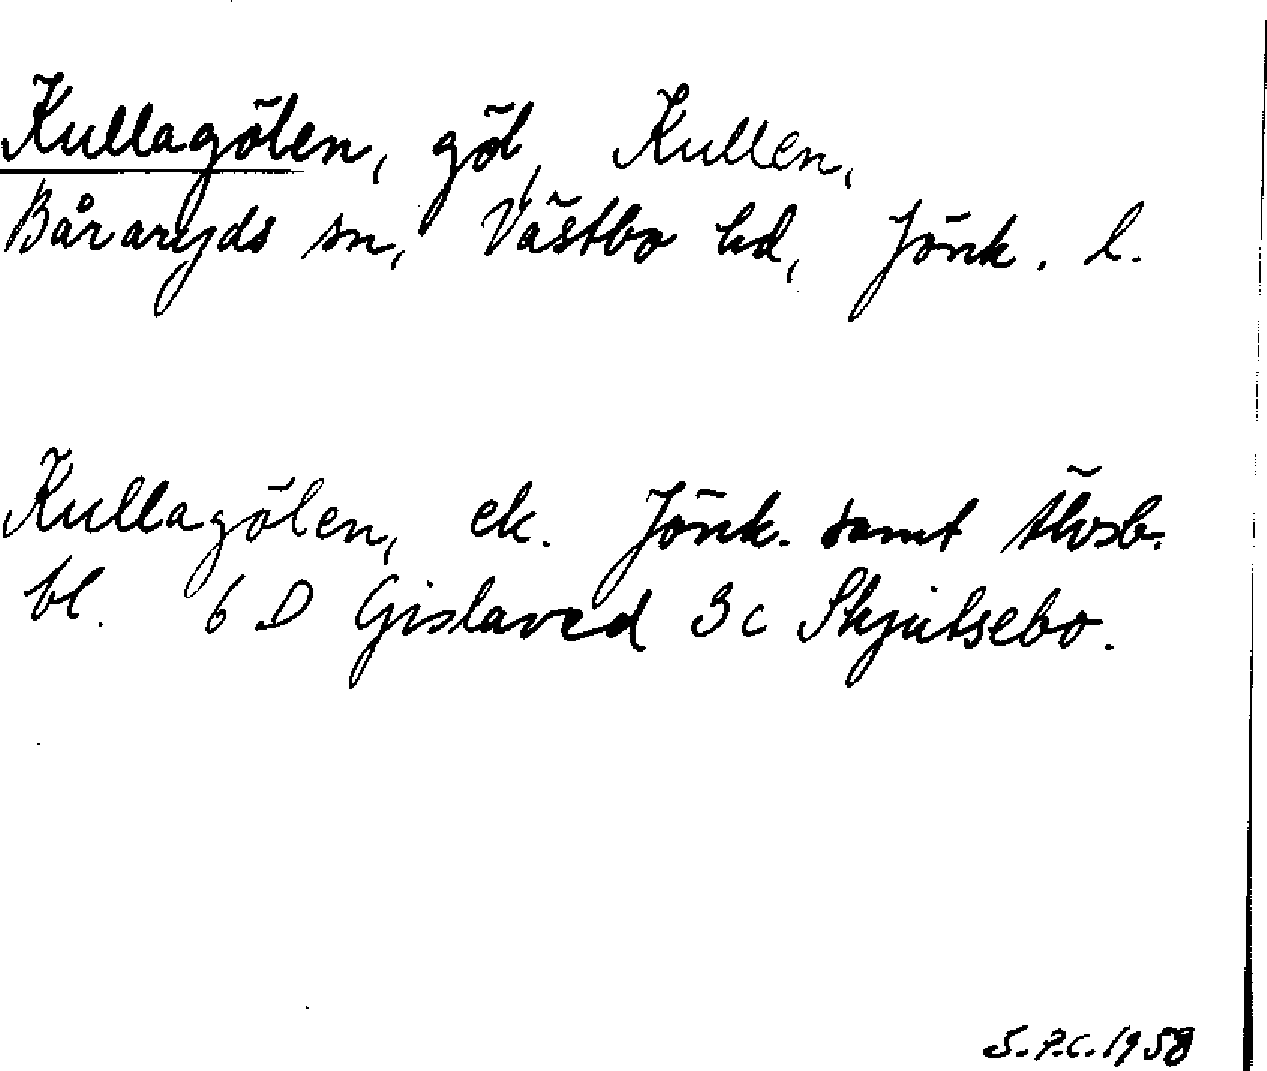 Kullagölen, göl, Kullen,
Båraryds sn, Västbo hd, Jönk. l.
Kullagölen, ek. Jönk. samt Älvsb.
bl. 6 D Gislaved 3 c Skjutsebo.
S.P.C. 1958